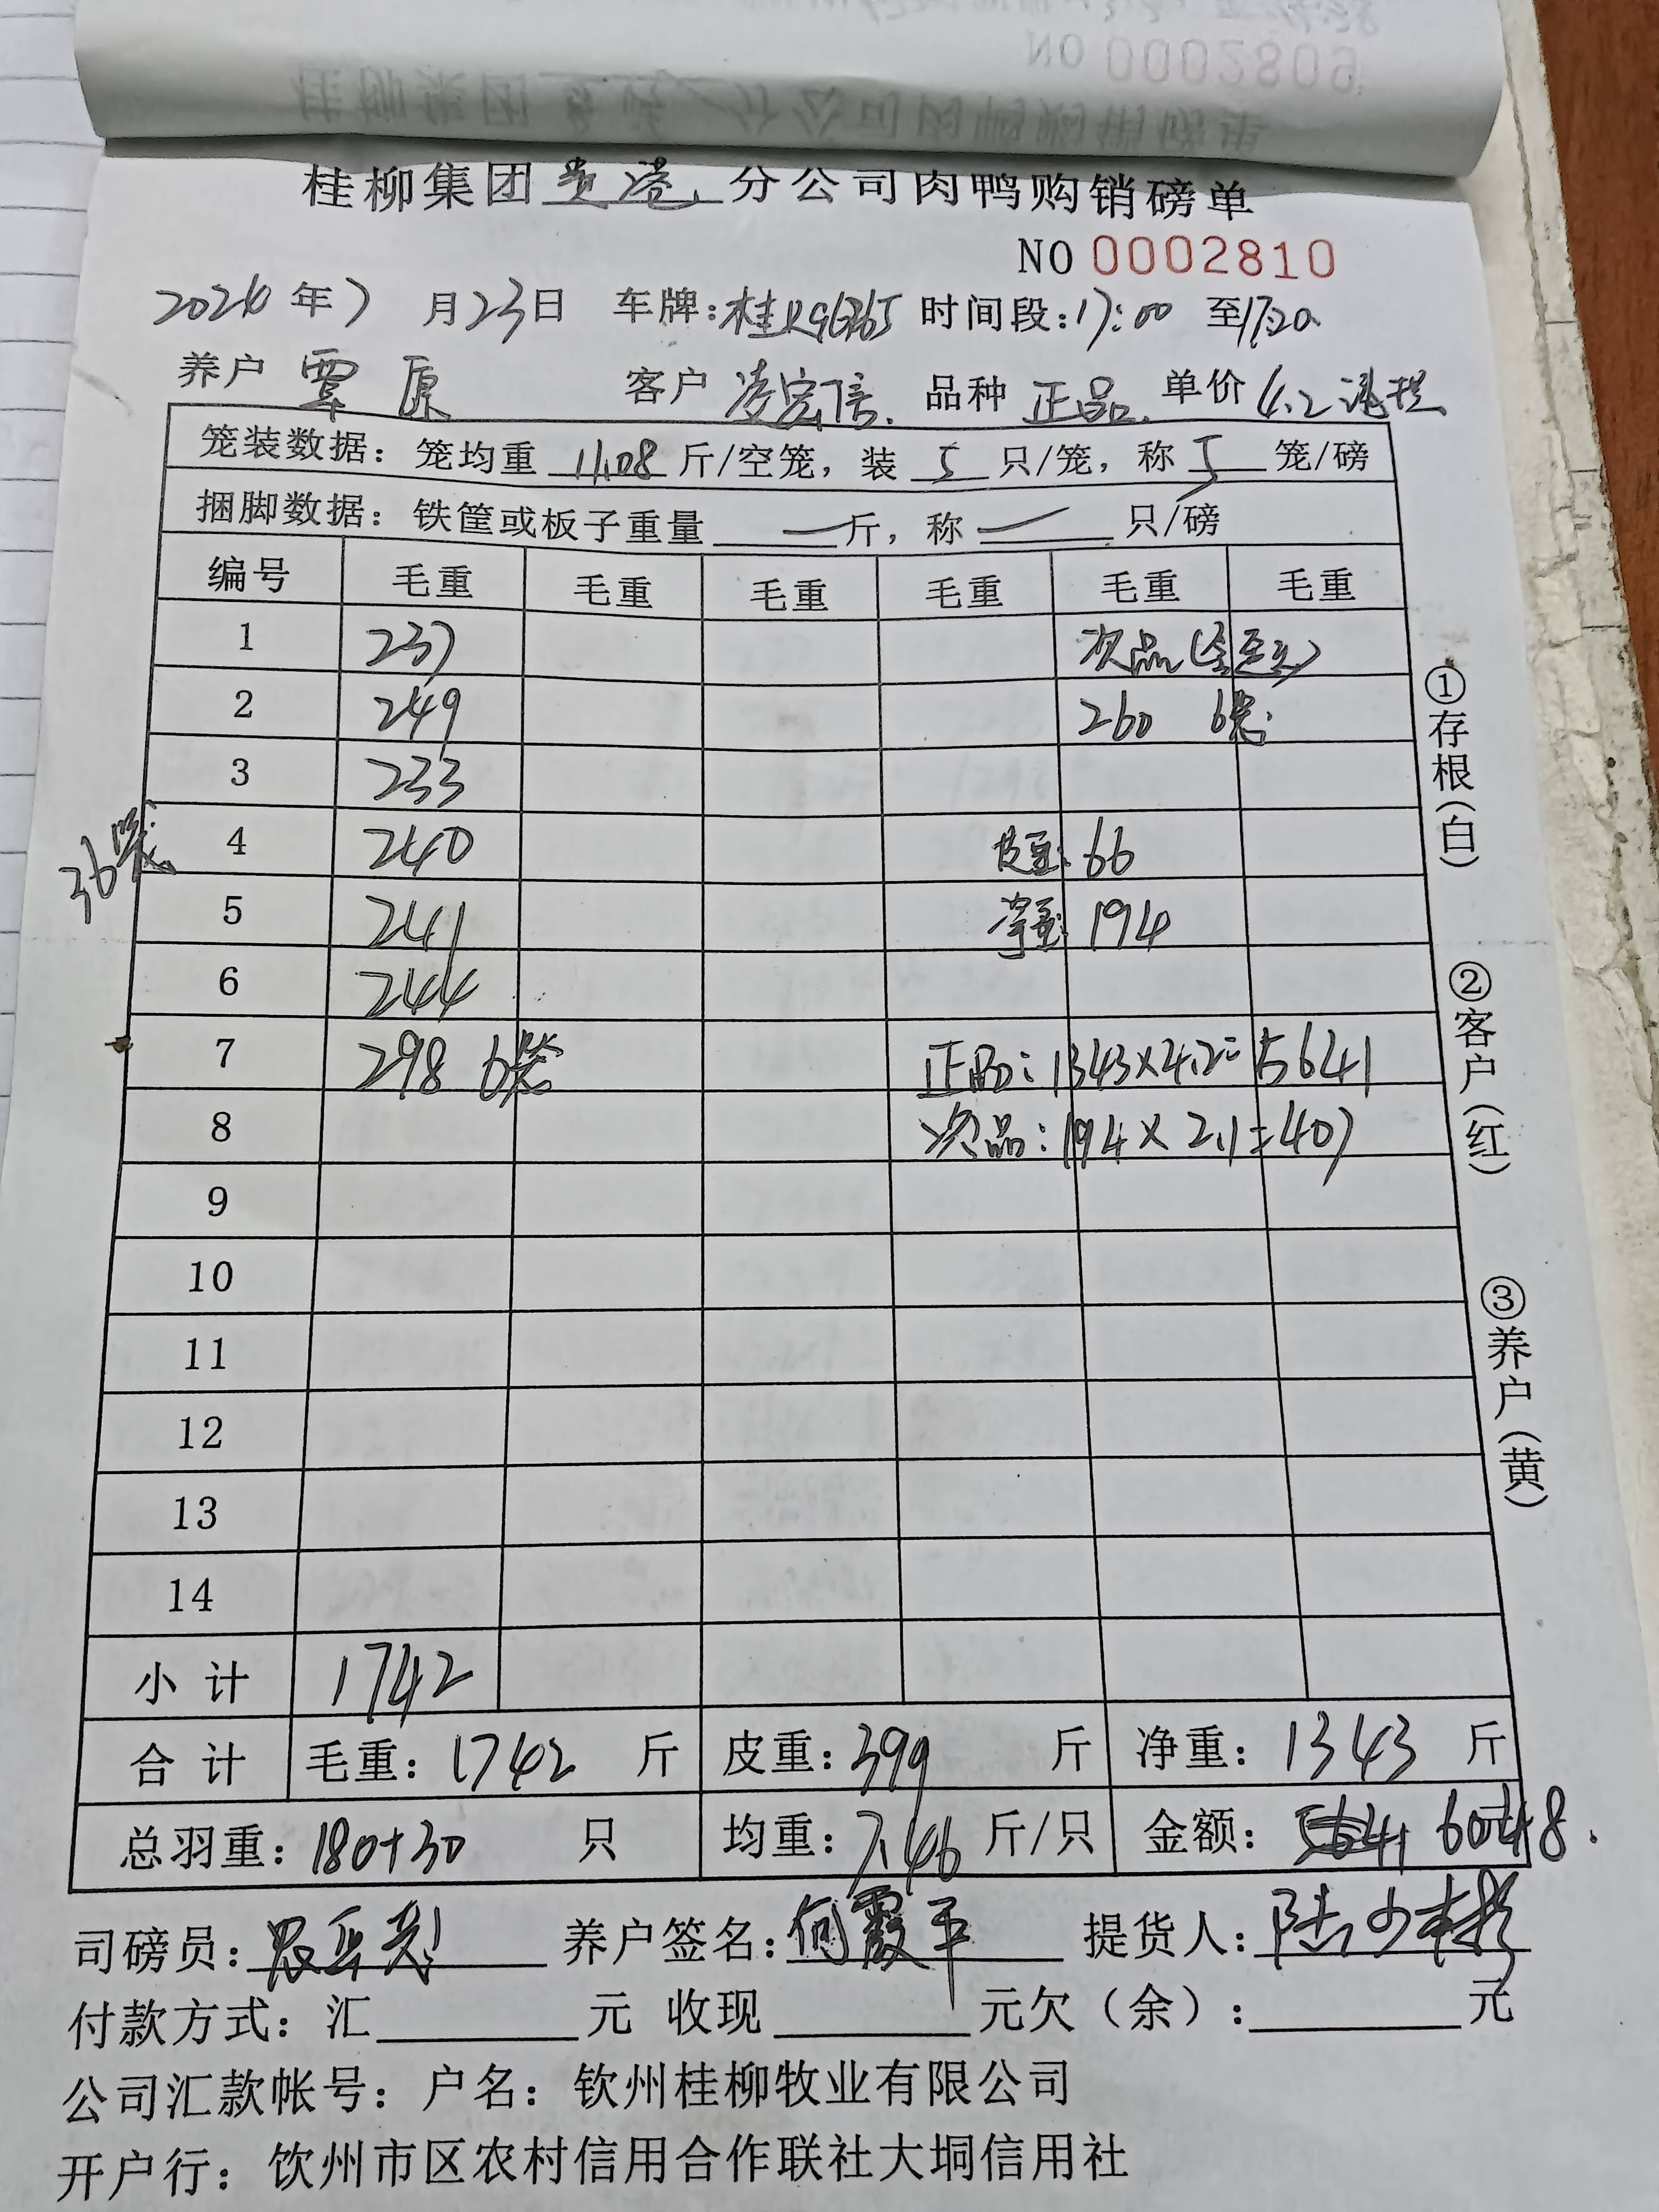 NO 0002809
桂柳集团贵港分公司肉鸭购销磅单
NO 0002810
2024年7月23日 车牌:桂 时间段:17:00 至17:20
养户 覃原 客户 凌宏信 品种 正品 单价 4.2
笼装数据：笼均重 11.08 斤/空笼，装 5 只/笼，称 5 笼/磅
捆脚数据：铁筐或板子重量 — 斤，称 — 只/磅
编号 毛重 毛重 毛重 毛重 毛重 毛重
1 237 次品
2 249 260 6笼
3 233
36笼 4 240 皮重: 66
5 241 净重: 194
6 244
7 298 6笼 正品: 1343×4.2=5641
8 次品: 194×2.1=407
9
10
11
12
13
14
小计 1742
合计 毛重: 1742 斤 皮重: 399 斤 净重: 1343 斤
总羽重: 180+30 只 均重: 7.46 斤/只 金额: 5641 6048.
司磅员: 养户签名: 何霞平 提货人: 陆少
付款方式：汇 元 收现 元欠（余）： 元
公司汇款帐号：户名：钦州桂柳牧业有限公司
开户行：钦州市区农村信用合作联社大垌信用社
①存根(白)
②客户(红)
③养户(黄)